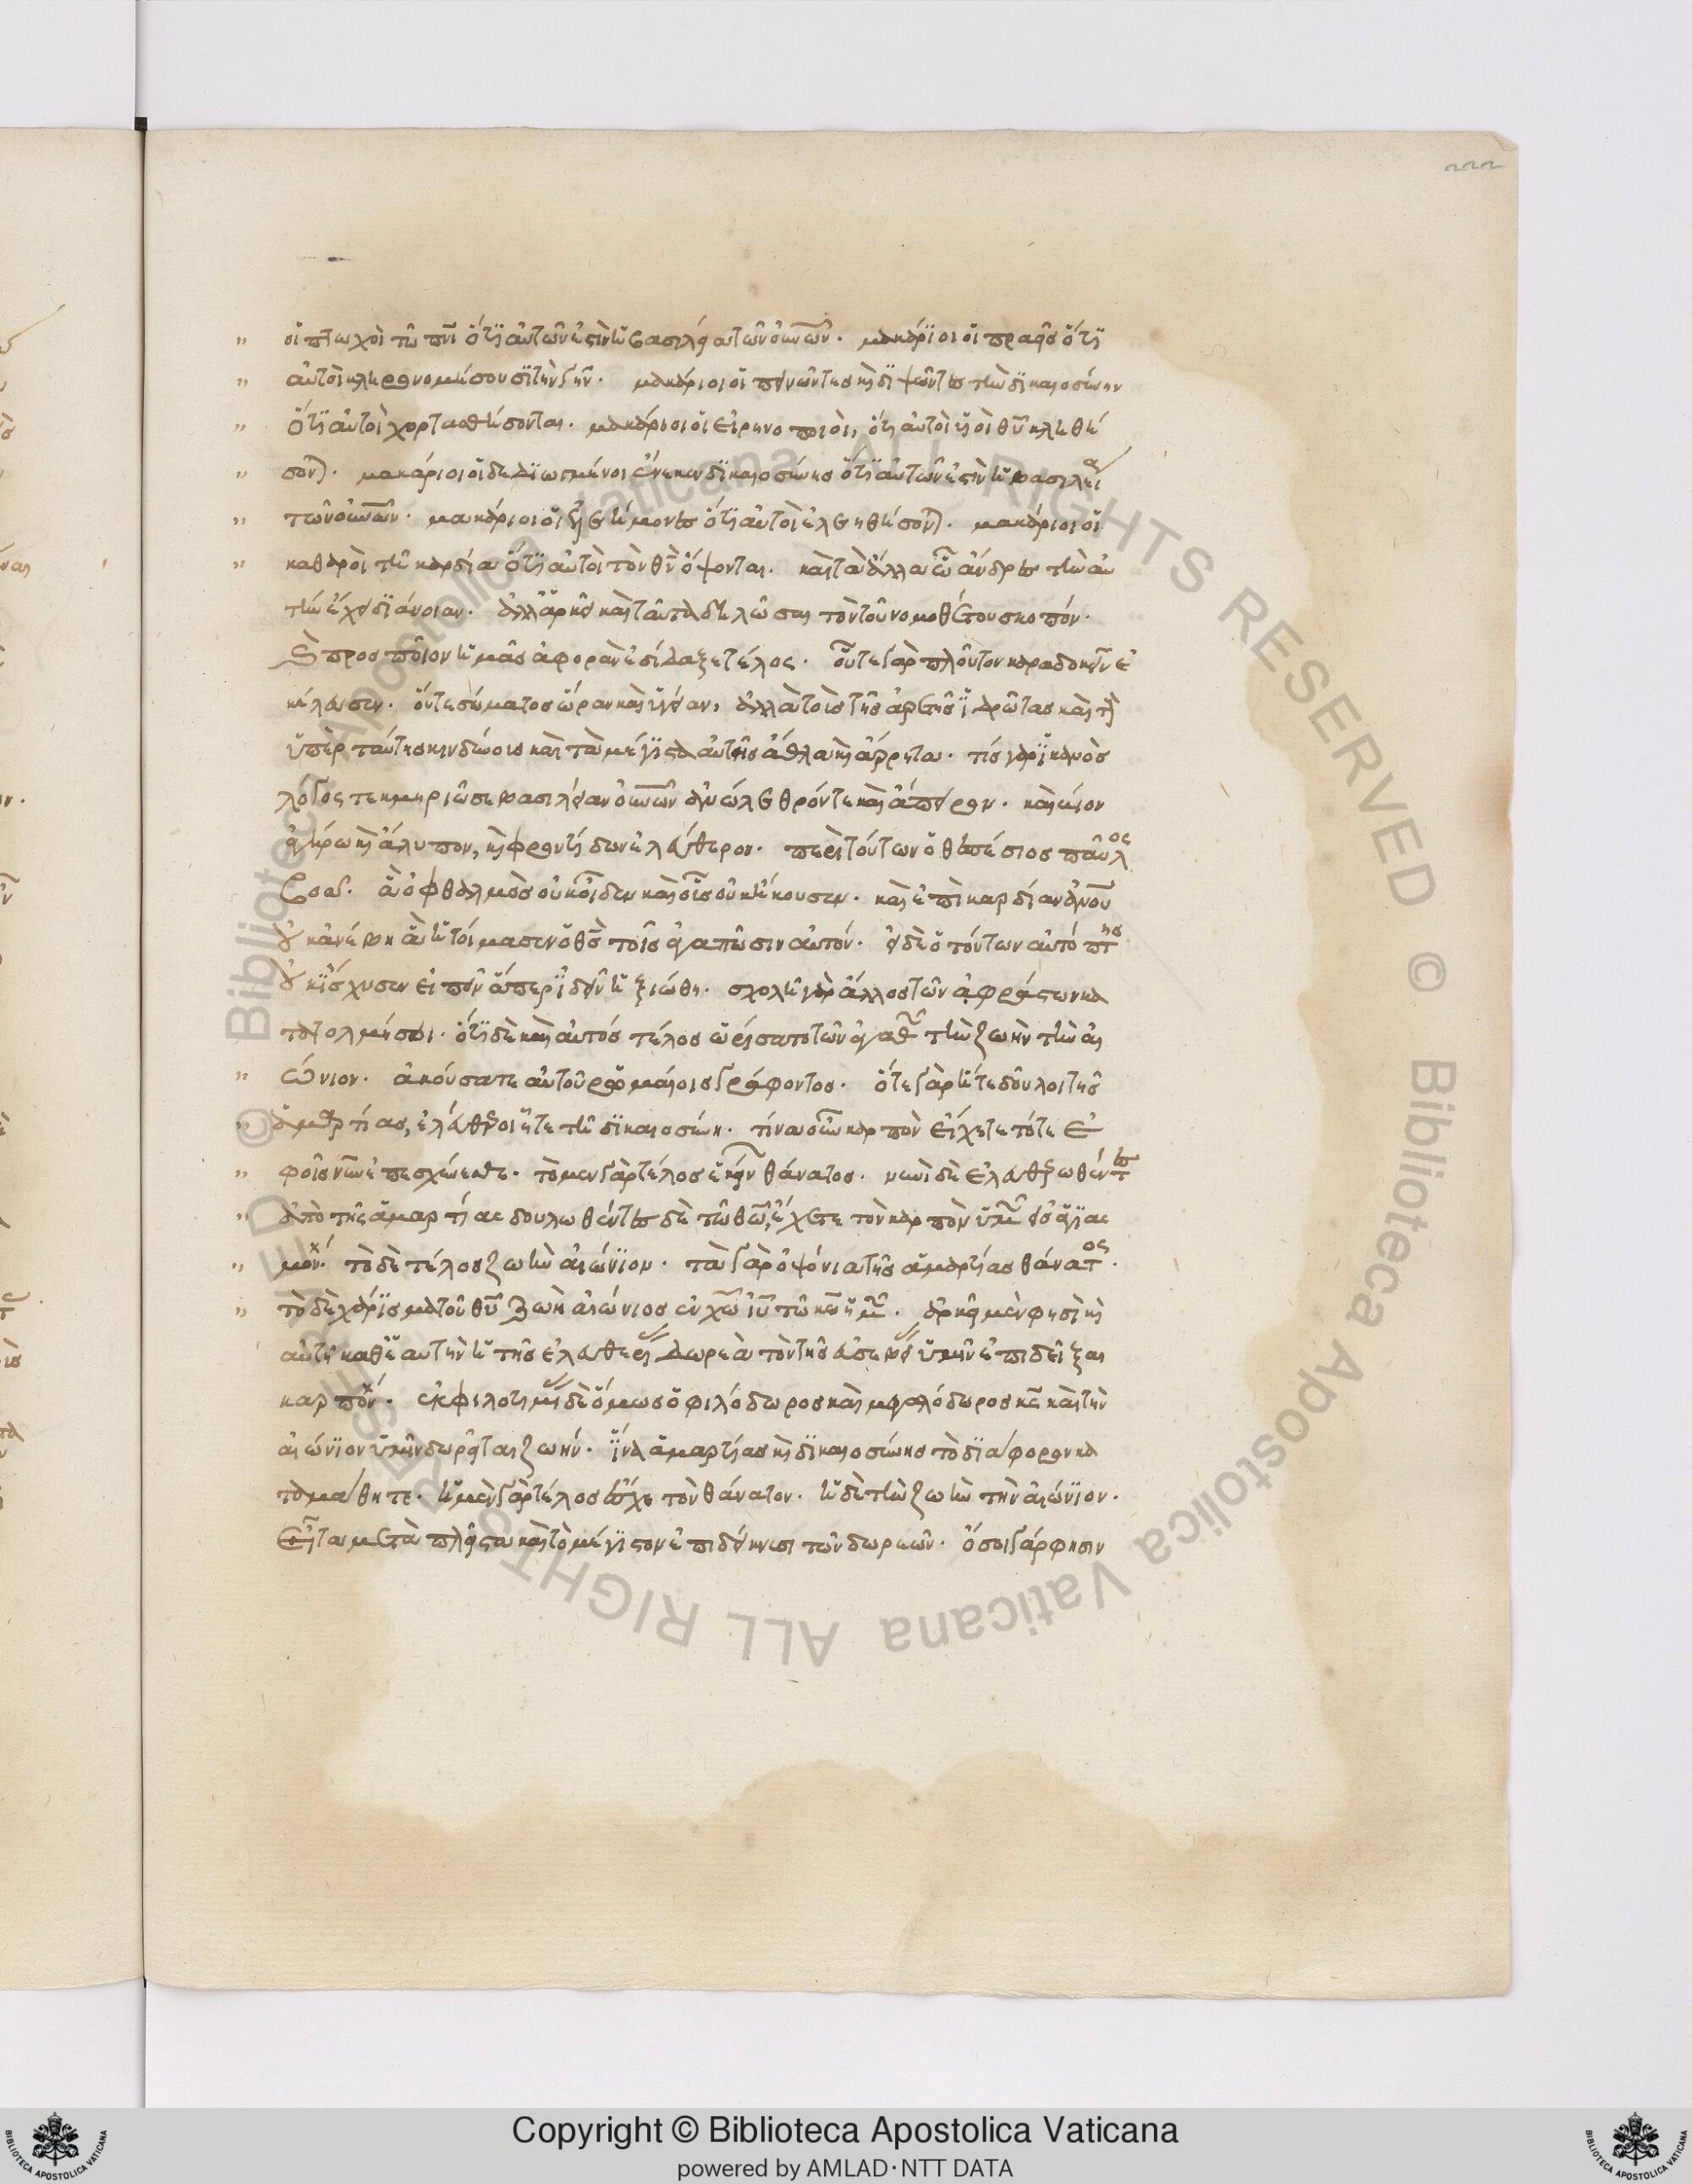 222
οἱ πτωχοὶ τῷ πνι ὅτι αὐτῶν ἐστὶν ἡ βασιλεία τῶν οὐνῶν. μακάριοι οἱ πραεῖς ὅτι
αὐτοὶ κληρονομήσουσι τὴν γῆν. μακάριοι οἱ πεινῶντες καὶ διψῶντες τὴν δικαιοσύνην
ὅτι αὐτοὶ χορτασθήσονται. μακάριοι οἱ εἰρηνοποιοὶ, ὅτι αὐτοὶ υἱοὶ θυ κληθή
σονται. μακάριοι οἱ δεδιωγμένοι ἕνεκεν δικαιοσύνης ὅτι αὐτῶν ἐστὶν ἡ βασιλεία
τῶν οὐνῶν. μακάριοι οἱ ἐλεήμονες ὅτι αὐτοὶ ἐλεηθήσονται. μακάριοι οἱ
καθαροὶ τῇ καρδία ὅτι αὐτοὶ τὸν θν ὄψονται. καὶ τὰ ἄλλα ὦ ἄνδρες τὴν αὐ
τὴν ἔχει διάνοιαν. ἀλλ' ἀρκεῖ καὶ ταῦτα δηλῶσαι τὸν τοῦ νομοθέτου σκοπόν.
πρὸς ποῖον ἡμᾶς ἀφορᾶν ἐδίδαξε τέλος. οὔτε γὰρ πλοῦτον καραδοκεῖν ἐ
κέλευσεν. οὔτε σώματος ὥραν καὶ ὑγείαν, ἀλλὰ τοὺς τῆς ἀρετῆς ἱδρῶτας καὶ τοὺς
ὑπὲρ ταύτης κινδύνους καὶ τὰ μέγιστα αὐτῆς ἆθλα καὶ ἄρρητα. τίς γὰρ ἱκανὸς
λόγος τεκμηριῶσαι βασιλείαν οὐνῶν ἀνώλεθρόν τε καὶ ἄπειρον. καὶ βίον
ἀγήρω καὶ ἄλυπον, καὶ φροντίδων ἐλεύθερον. περὶ τούτων ὁ θεσπέσιος παῦλος
βοᾷ. ἃ ὀφθαλμὸς οὐκ οἶδεν καὶ οὖς οὐκ ἤκουσεν. καὶ ἐπὶ καρδίαν ἀνου
οὐκ ἀνέβη ἃ ἡτοίμασεν ὁ θς τοῖς ἀγαπῶσιν αὐτόν. εἰ δὲ ὁ τούτων αὐτόπτης
οὐκ ἴσχυσεν εἰπεῖν ἅπερ ἰδεῖν ἠξιώθη. σχολῇ γὰρ ἄλλος τῶν ἀφράστων κα
τατολμήσοι. ὅτι δὲ καὶ αὐτὸς τέλος ὡρίσατο τῶν ἀγαθῶν τὴν ζωὴν τὴν αἰ
ώνιον. ἀκούσατε αὐτοῦ ρωμαίοις γράφοντος. ὅτε γὰρ ἦτε δοῦλοι τῆς
ἁμαρτίας, ἐλεύθεροι ἦτε τῇ δικαιοσύνῃ. τίνα οὖν καρπὸν εἴχετε τότε ἐ
φ' οἷς νῦν ἐπαισχύνεσθε. τὸ μὲν γὰρ τέλος ἐκείνων θάνατος. νυνὶ δὲ ἐλευθερωθέντες
ἀπὸ τῆς ἁμαρτίας δουλωθέντες δὲ τῷ θῶ, ἔχετε τὸν καρπὸν ὑμῶν εἰς ἁγιας
μόν. τὸ δὲ τέλος ζωὴν αἰώνιον. τὰ γὰρ ὀψόνια τῆς ἁμαρτίας θάνατος.
τὸ δὲ χάρισμα τοῦ θυ ζωὴ αἰώνιος ἐν χω ιυ τῷ κω ἡμῶν. ἀρκεῖ μὲν φησὶ καὶ
αὐτὴ καθ' ἑαυτὴν ἡ τῆς ἐλευθερίας δωρεὰ τὸν τῆς εὐσεβείας ὑμῖν ἐπιδεῖξαι
καρπόν. ἐκ φιλοτιμίας δὲ ὅμως ὁ φιλόδωρος καὶ μεγαλόδωρος κς καὶ τὴν
αἰώνιον ὑμῖν δωρεῖται ζωήν. ἵνα ἁμαρτίας καὶ δικαιοσύνης τὸ διάφορον κα
ταμάθητε. ἡ μὲν γὰρ τέλος ἔχει τὸν θάνατον. ἡ δὲ τὴν ζωὴν τὴν αἰώνιον.
εἶτα μετὰ πλεῖστα καὶ τὸ μέγιστον ἐπιδείκνυσι τῶν δωρεῶν. ὅσοι γάρ φησιν
Copyright © Biblioteca Apostolica Vaticana
powered by AMLAD·NTT DATA